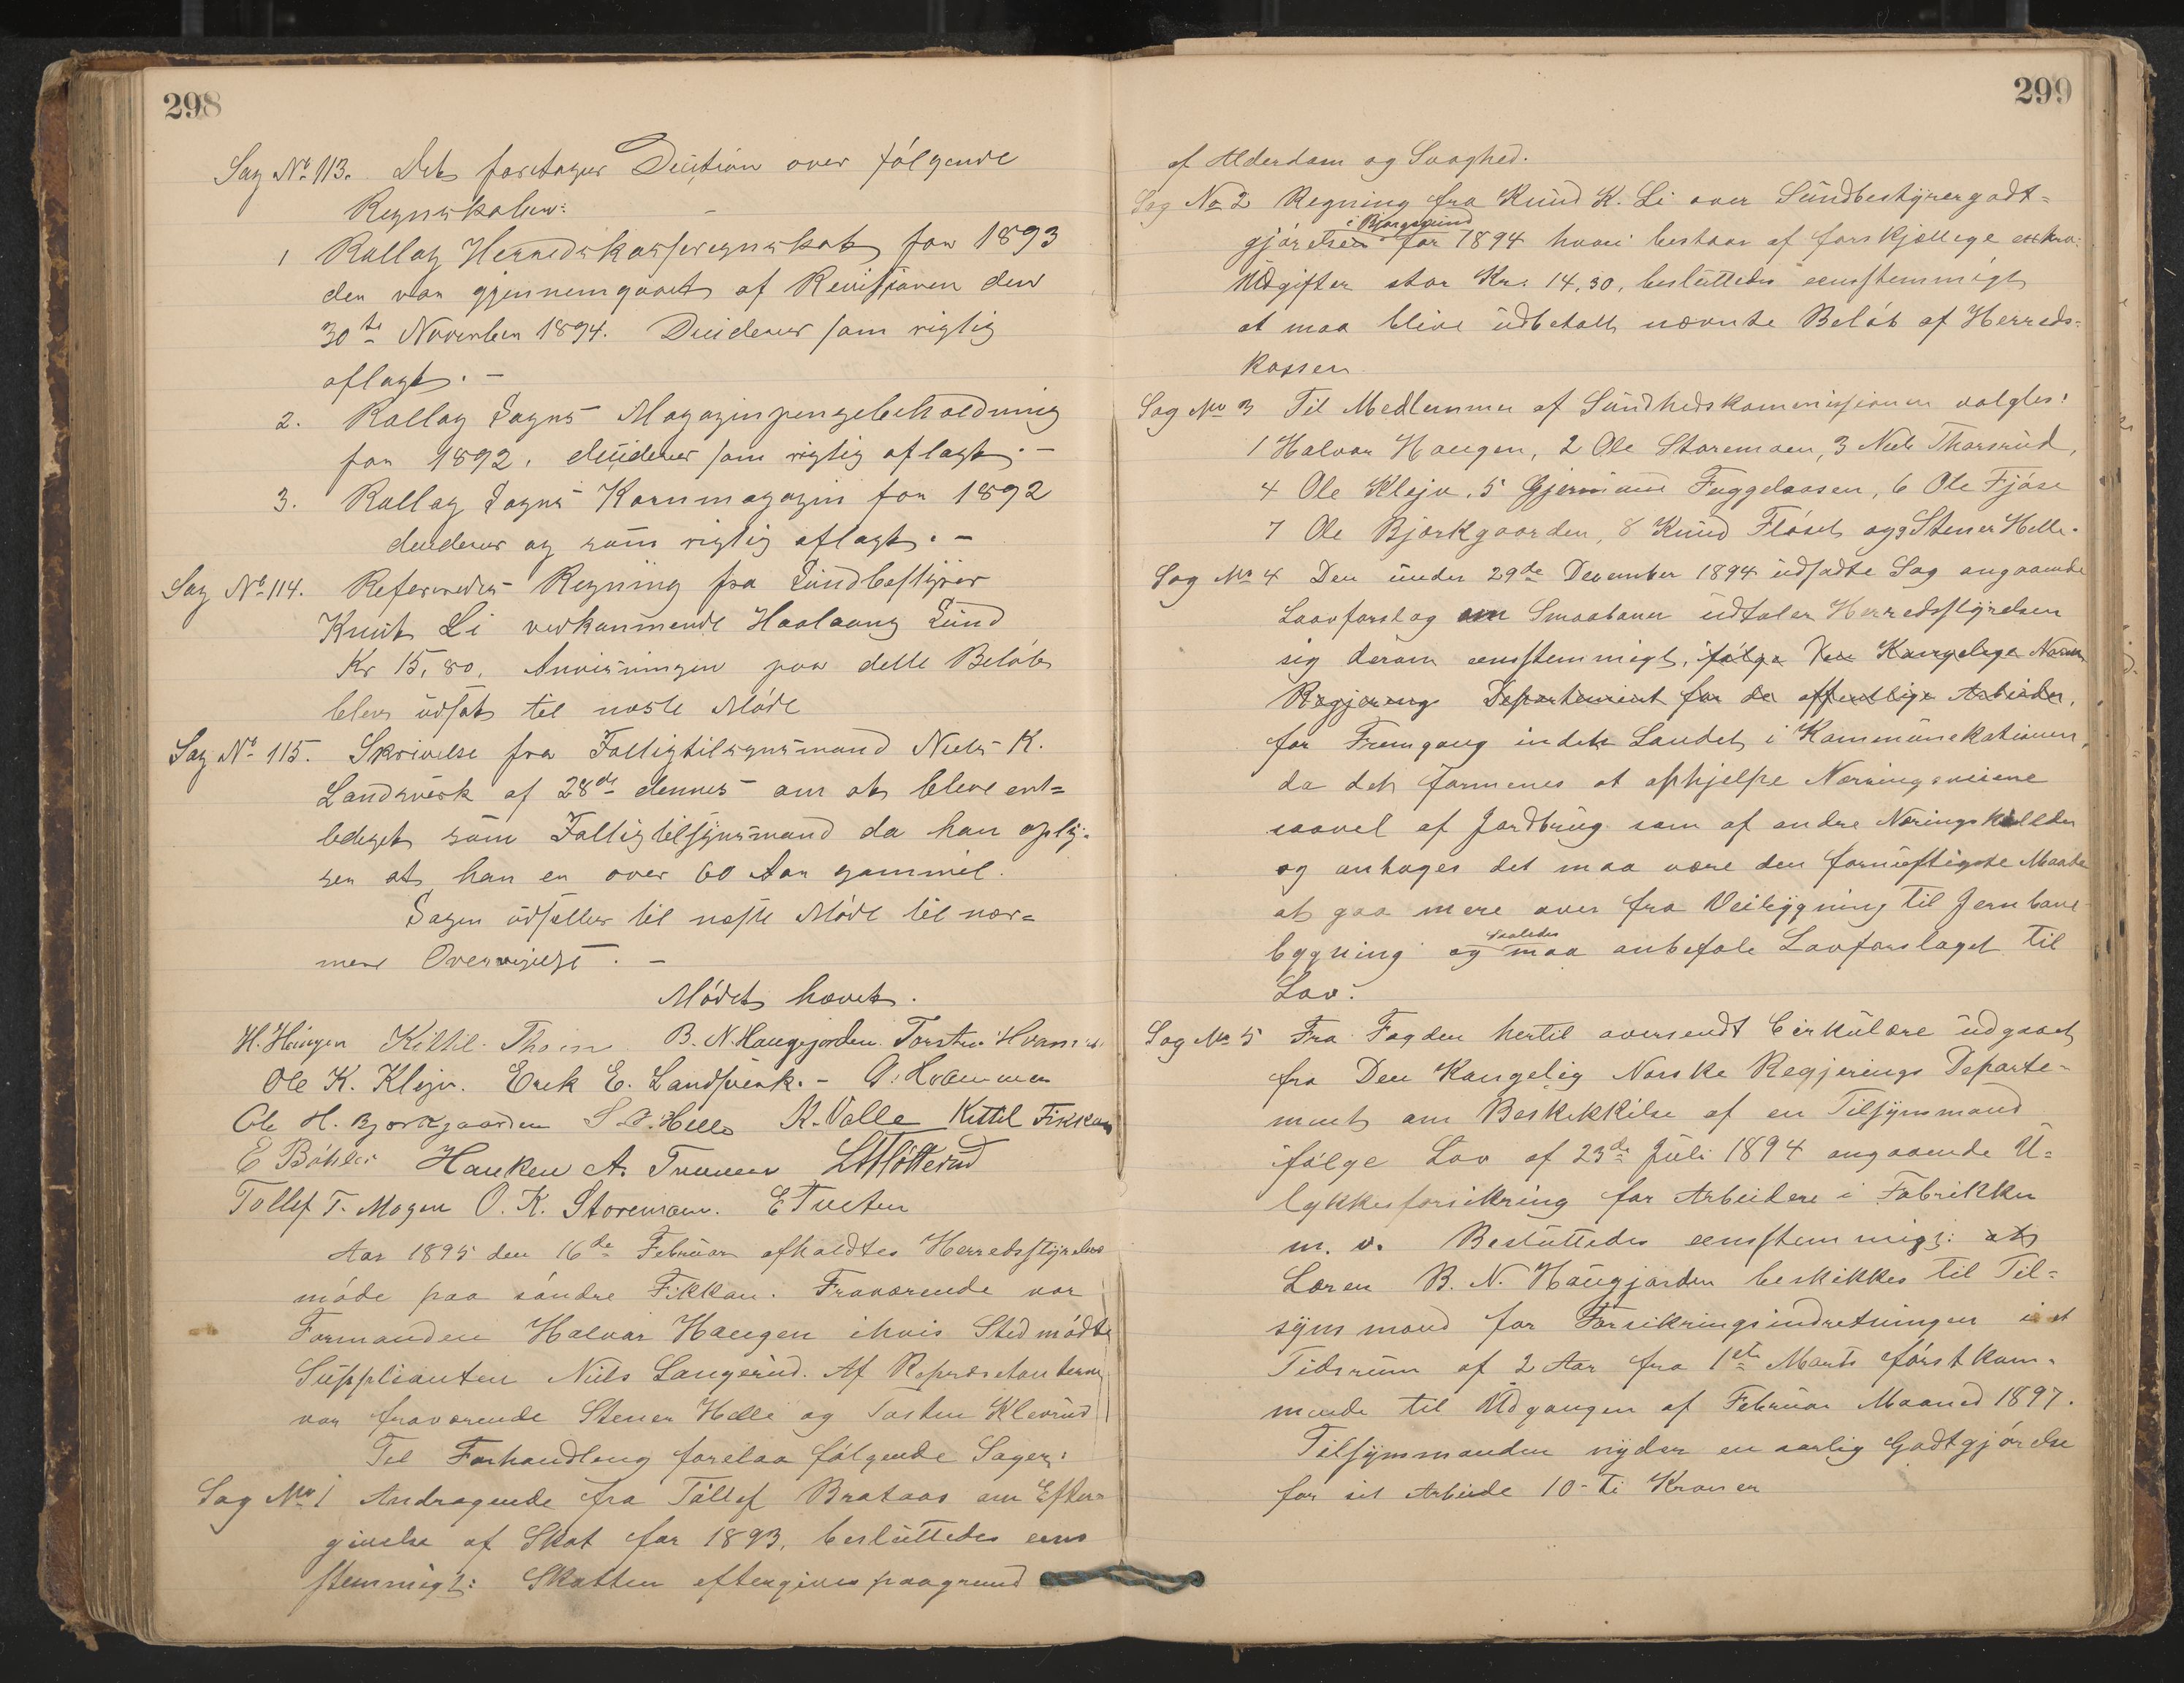 298
Sag No 113. Det foretages Decition over følgende
Regnskaber:
1 Rollag Herredskasseregnskab for 1893
der var gjennemgaaet af Revisionen den
30te November 1894. Decideres som rigtig
aflagt. –
2. Rollag Sogns Magazinpengebeholdning
for 1892, decideres som rigtig aflagt. –
3. Rollag Sogns Kornmagazin for 1892
decideres og som rigtig aflagt. –
Sag No 114. Refereredes Regning fra Sundbestyrer
Knut Li vedkommende Haalaang Sund
Kr 15,80. Anvisningen paa dette Beløb
blev udsat til næste Møde
Sag No 115. Skrivelse fra Fattigtilsynsmand Niels K.
Landsverk af 28de dennes om at blive ent=
lediget som Fattigtilsynsmand da han oply=
ser at han er over 60 Aar gammel.
Sagen udsættes til næste Møde til nær=
mere Overveielse. –
Mødet hævet.
H. Haugen Kittil Thoen B. N. Haugjorden. Torsten
Ole K. Klejv. Erik E. Landsverk. –
Ole H. Bjørkgaarden S. Helle K. Valle Kittil Fikkan
E Bøhler Haaken A. Traaen
Tollef T. Mogen O. K. Storemoen. E Tveten
Aar 1895 den 16de Februar afholdtes Herredsstyrelse
møde paa søndre Fikkan. Fraværende var
Formanden Halvor Haugen ihvis Sted mødte
Supplianten Niels Langerud. Af Repræsetanterne
var fraværende Stener Helle og Tosten Klevrud
Til Forhandling forelaa følgende Sager:
Sag No 1 Andragende fra Tollef Brataas om Efter=
givelse af Skat for 1893, besluttedes eens
stemmigt: Skatten eftergives paagrund
299
af Alderdom og Svaghed.
Sag No 2 Regning fra Knud K. Li over Sundbestyrergodt=
i Bjørgesund
gjørelsen for 1894 hvori bestaar af forskjællige extra:
Udgifter stor Kr. 14,30, besluttedes eensstemmigt
at maa blive udbetalt nævnte Beløb af Herreds=
kassen
Sag No 3 Til Medlemmer af Sundhedskommissionen valgtes:
1 Halvor Haugen, 2 Ole Storemoen, 3 Niels Thorsrud,
4 Ole Klejv, 5 Gjermund Fuggelaasen, 6 Ole Fjøse
7 Ole Bjørkgaarden, 8 Knud Fløset og 9 Stener Helle.
Sag No 4 Den under 29de December 1894 udsadte Sag angaaende
Laavforslag om Smaabaner udtaler Herredsstyrelsen
sig derom eensstemmigt, ifølge Den Kongelige Norsk
Regjerings Departement for de offentlige Arbeider,
for Fremgang indet Landet i Kommunekationen,
da det formenes at ophjelpe Næringsveiene
saavel af Jordbrug som af andre Næringskilder
og antages det maa være den fornuftigste Maade
at gaa mere over fra Veibygning til Jernbane
Saaledes
bygning og maa anbefale Lovforslaget til
Lov.
Sag No 5 Fra Fogden hertil oversendt Cirkulære udgaaet
fra Den Kongelig Norske Regjerings Departe-
ment om Beskikkelse af en Tilsynsmand
ifølge Lov af 23de Juli 1894 angaaende U=
lykkesforsikring for Arbeidere i Fabrikker
m. v. Besluttedes eensstemmigt: at
Læren B. N. Haugjorden beskikkes til Til=
synsmand for Forsikringsindretningen i et
Tidsrum af 2 Aar fra 1ste Marts førstkom-
mende til Udgangen af Februar Maaned 1897.
Tilsynsmanden nyder en aarlig Godtgjørelse
for sit Arbeide 10- ti Kroner